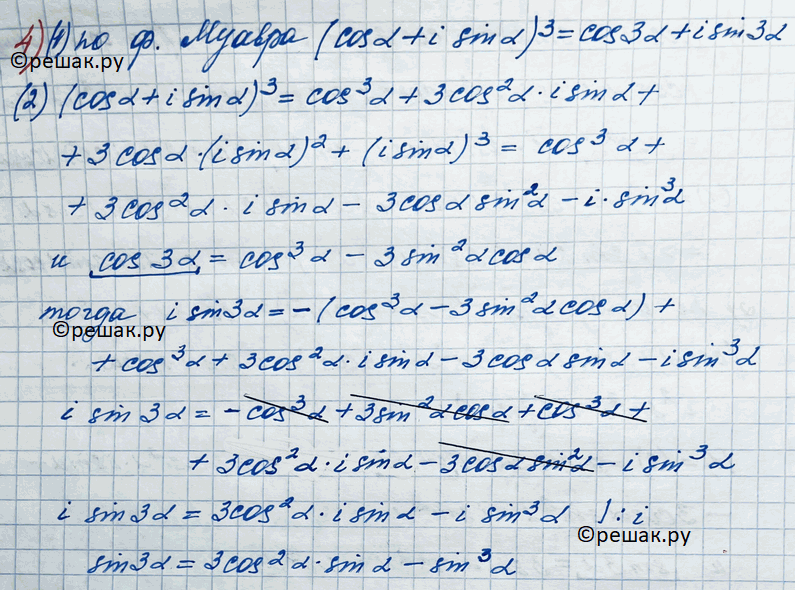 4) (1) по ф. Муавра (cosα + i sinα)³ = cos3α + i sin3α
©решак.ру
(2) (cosα + i sinα)³ = cos³α + 3cos²α · i sinα +
+ 3cosα · (i sinα)² + (i sinα)³ = cos³α +
+ 3cos²α · i sinα − 3cosα sin²α − i · sin³α
и cos 3α = cos³α − 3sin²α cosα
тогда i sin3α = −(cos³α − 3sin²α cosα) +
©решак.ру
+ cos³α + 3cos²α · i sinα − 3cosα sinα − i sin³α
i sin 3α = −cos³α + 3sin²α cosα + cos³α +
+ 3cos²α · i sinα − 3cosα sin²α − i sin³α
i sin3α = 3cos²α · i sinα − i sin³α ) : i
©решак.ру
sin3α = 3cos²α · sinα − sin³α